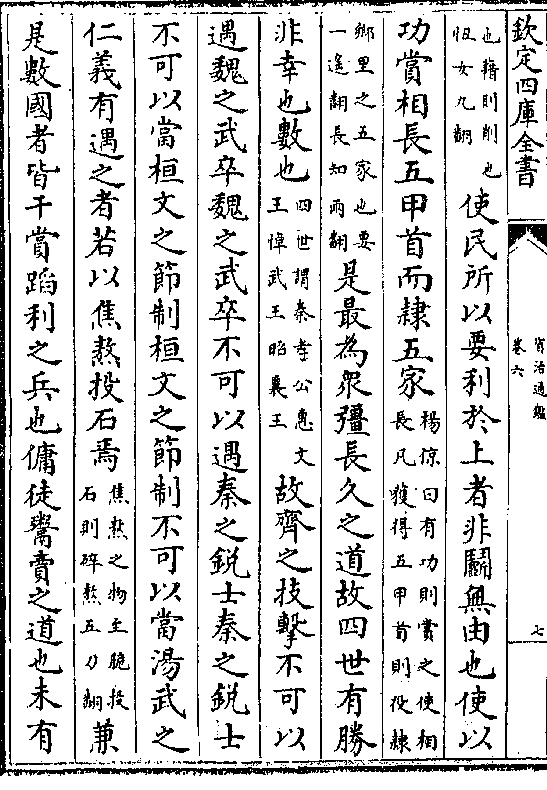 欽定四庫全書
資治通鑑
卷六
七
也藉則削也忸女九翻使民所以要利於上者非鬭無由也使以
功賞相長五甲首而隸五家楊倞曰有功則賞之使相長凡獲得五甲首則役隸
鄉里之五家也要一遙翻長知兩翻是最為衆彊長久之道故四世有勝
非幸也數也四世謂秦孝公惠文王悼武王昭襄王故齊之技擊不可以
遇魏之武卒魏之武卒不可以遇秦之銳士秦之銳士
不可以當桓文之節制桓文之節制不可以當湯武之
仁義有遇之者若以焦熬投石焉焦熬之物至脆投石則碎熬五刀翻兼
是數國者皆干賞蹈利之兵也傭徒鬻賣之道也未有